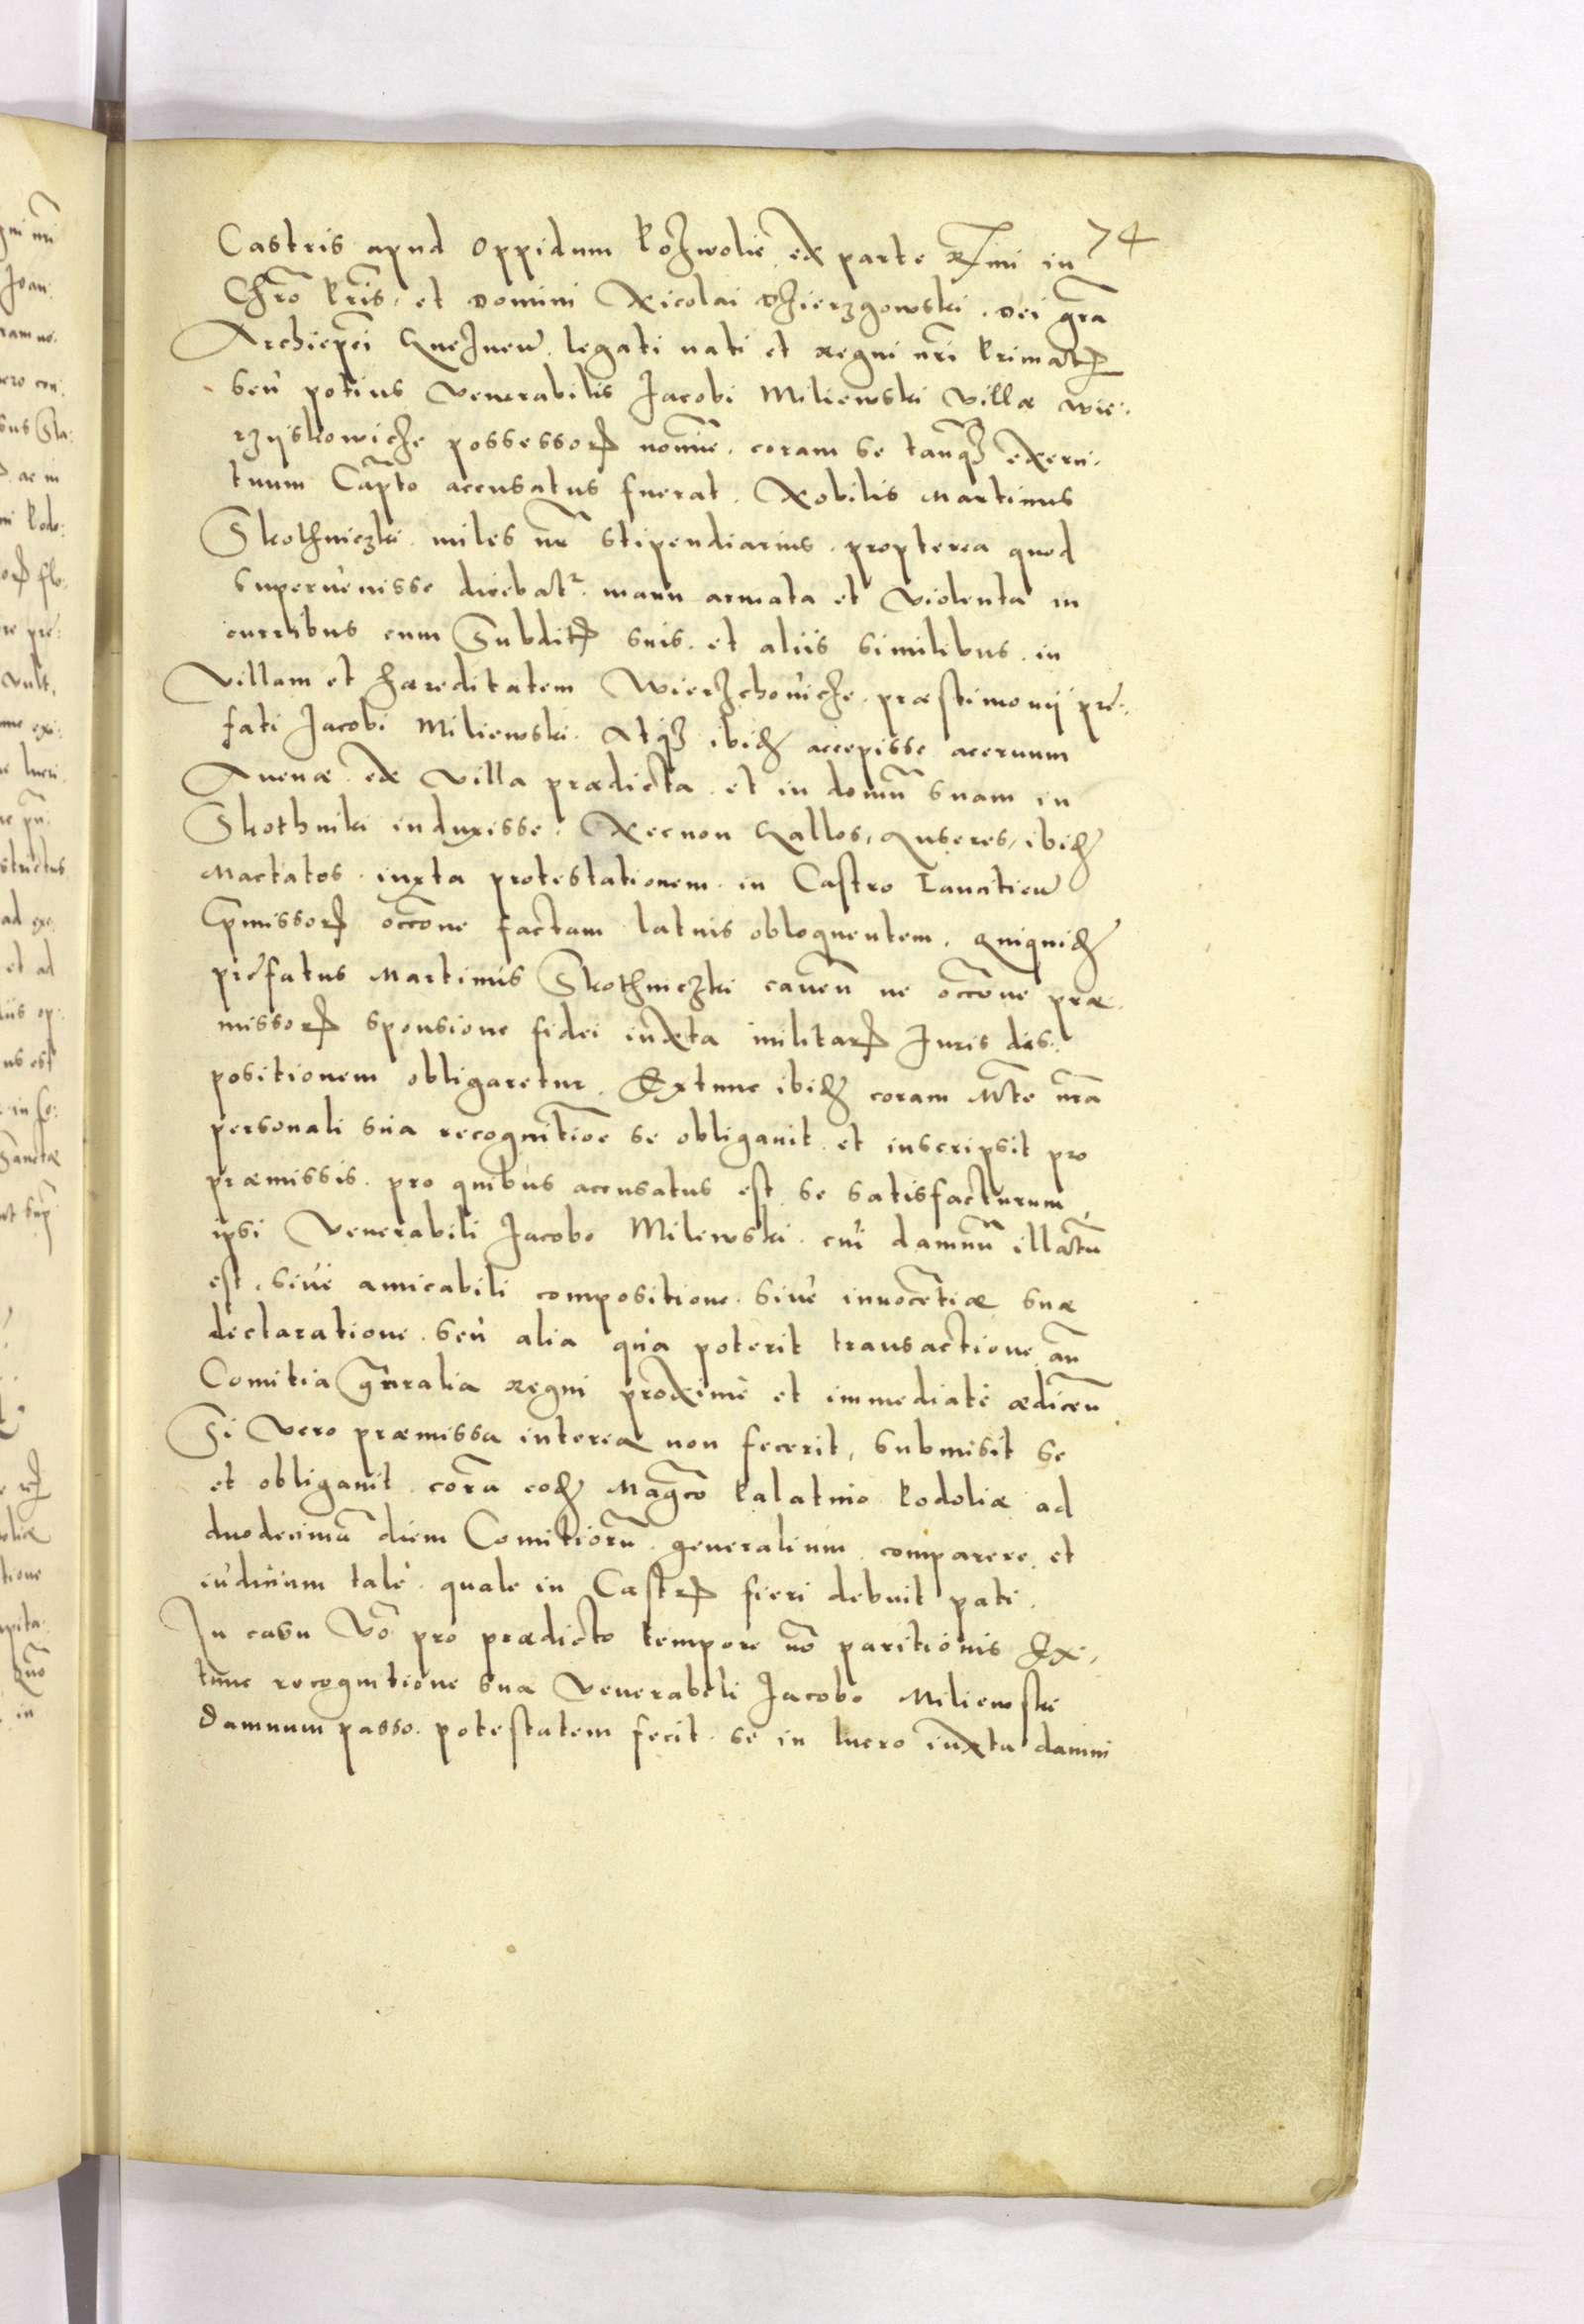 Castris apud oppidum Kozwolie ex parte Rssmi in 74
Chr̃o Pr̃is. et Domini Nicolai Dzierzgowski. Dei gr̃a
Archiepĩ Gneznen̄. legati nati et regni nr̃i Primatis
seu potius venerabilis Jacobi Miliewski villæ Wie:
rzyiskowicze possessoris nomine. coram se tanq̃ exerci-
tuum Capto accusatus fuerat. Nobilis Martinus
Skothniczki. miles nr̃ stipendiarius. propterea quod
supervenisse dicebatr manu armata et violenta in
curribus cum Subditis suis. et aliis similibus. in
villam et hæreditatem Wierzchouicze. præstimonij prę:
fati Jacobi Miliewski. Atq̃ ibid̃ accepisse aceruum
Auenæ ex villa prædicta. et in domũ suam in
Skothniki induxisse. Necnon Gallos, Anseres, ibid̃
Mactatos. iuxta protestationem in Castro Lancitien̄
p̃missorũ occõne factam latius obloquentem. Quiquid̃
pręfatus Martinus Skothniczki caven̄ ne occõne præ-
missorũ sponsione fidei iuxta militaris Juris dis:
positionem obligaretur. Extunc ibid̃ coram Mte nr̃a
personali sua recognitiõe se obligauit et inscripsit pro
præmissis. pro quibus accusatus est se satisfacturum
ipsi Venerabili Jacobo Milewski. cui damnũ illatũ
est. siue amicabili compositione. siue innocẽtiæ suæ
declaratione. seu alia qua poterit transactione añ
Comitia gñralia regni proximè et immediatè ædicen̄
Si vero præmissa interea non fecerit, submisit se
et obligauit corã eod̃ Magco Palatino Podoliæ ad
duodecimũ diem Comitiorũ generalium comparere et
iudicium talè quale in Castris fieri debuit pati.
In casu võ pro prædicto tempore nõ paritionis Ex-
tunc recognitione sua Venerabili Jacobo Miliewski
damnum passo. potestatem fecit. se in lucro iuxta damni